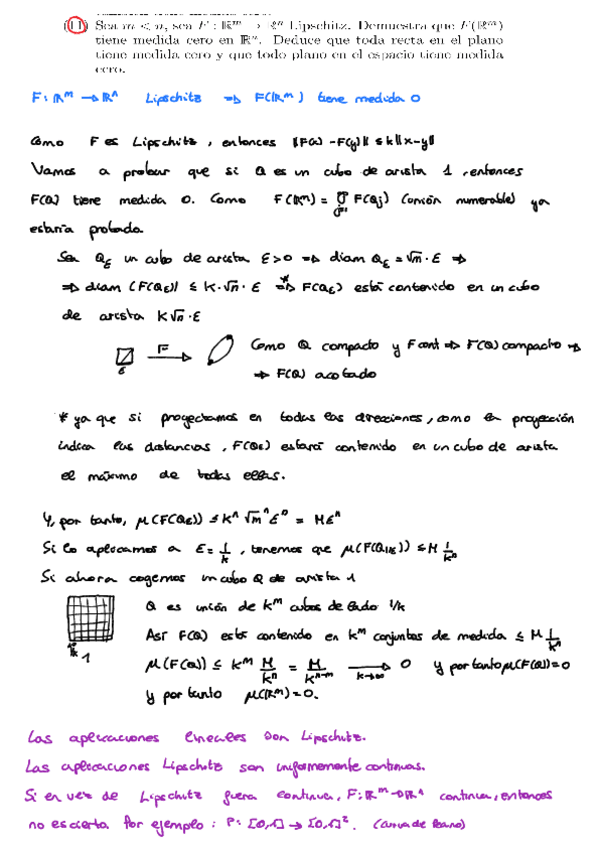 (11) Sea m < n, sea F : ℝᵐ → ℝⁿ Lipschitz. Demuestra que F(ℝᵐ)
tiene medida cero en ℝⁿ. Deduce que toda recta en el plano
tiene medida cero y que todo plano en el espacio tiene medida
cero.
F: ℝᵐ → ℝⁿ Lipschitz ⇒ F(ℝᵐ) tiene medida 0
Como F es Lipschitz, entonces ‖F(x) - F(y)‖ ≤ k‖x-y‖
Vamos a probar que si Q es un cubo de arista 1, entonces
F(Q) tiene medida 0. Como F(ℝᵐ) = ⋃ F(Qj) (unión numerable) ya
estaría probada
Sea Q_ε un cubo de arista ε>0 ⇒ diam Q_ε = √m · ε ⇒
⇒ diam (F(Q_ε)) ≤ K·√m · ε ⇒* F(Q_ε) está contenido en un cubo
de arista K√m · ε
F Como Q compacto y F cont ⇒ F(Q) compacto ⇒
ε ⇒ F(Q) acotado
* ya que si proyectamos en todas las direcciones, como la proyección
indica las distancias, F(Q_ε) estará contenido en un cubo de arista
el máximo de todas ellas.
Y, por tanto, μ(F(Q_ε)) ≤ Kⁿ √mⁿ εⁿ = Mεⁿ
Si lo aplicamos a ε = 1/k, tenemos que μ(F(Q_1/k)) ≤ M 1/kⁿ
Si ahora cogemos un cubo Q de arista 1
Q es unión de kᵐ cubos de lado 1/k
Así F(Q) está contenido en kᵐ conjuntos de medida ≤ M 1/kⁿ
1/k 1
μ(F(Q)) ≤ kᵐ M/kⁿ = M/kⁿ⁻ᵐ →(k→∞) 0 y por tanto μ(F(Q))=0
y por tanto μ(ℝᵐ)=0.
Las aplicaciones lineales son Lipschitz.
Las aplicaciones Lipschitz son uniformemente continuas.
Si en vez de Lipschitz fuera continua, F: ℝᵐ → ℝⁿ continua, entonces
no es cierta. Por ejemplo: P: [0,1] → [0,1]². (curva de Peano)